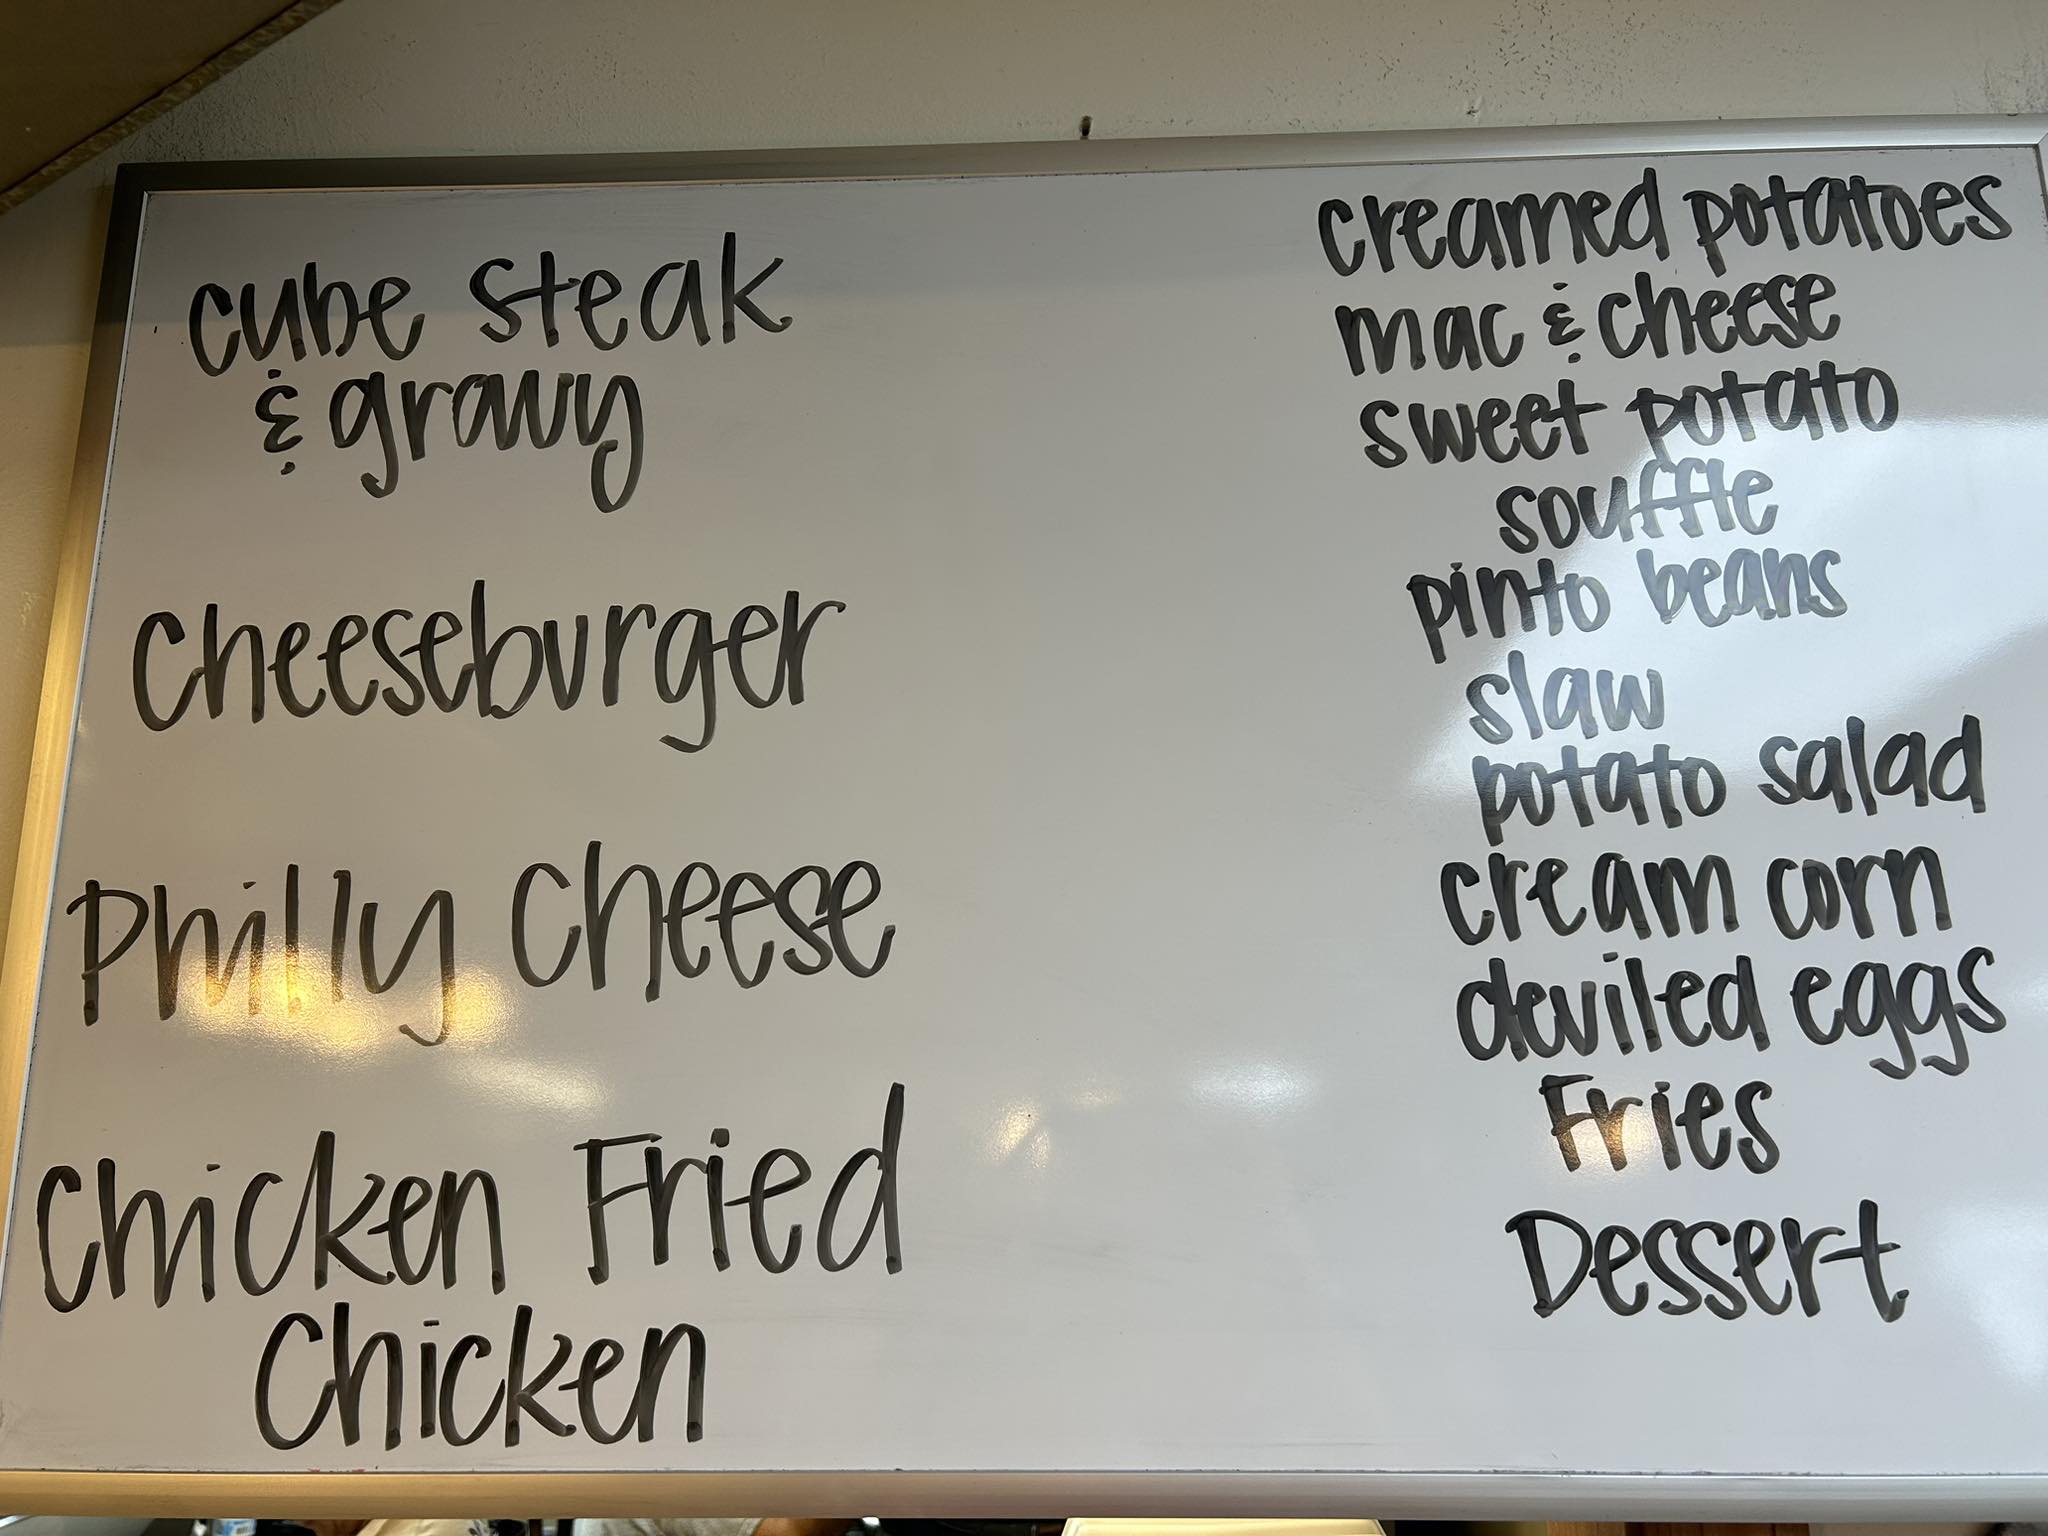 cube steak
& gravy
Cheeseburger
Philly Cheese
Chicken Fried
Chicken
creamed potatoes
mac & cheese
sweet potato
souffle
pinto beans
slaw
potato salad
cream corn
deviled eggs
Fries
Dessert